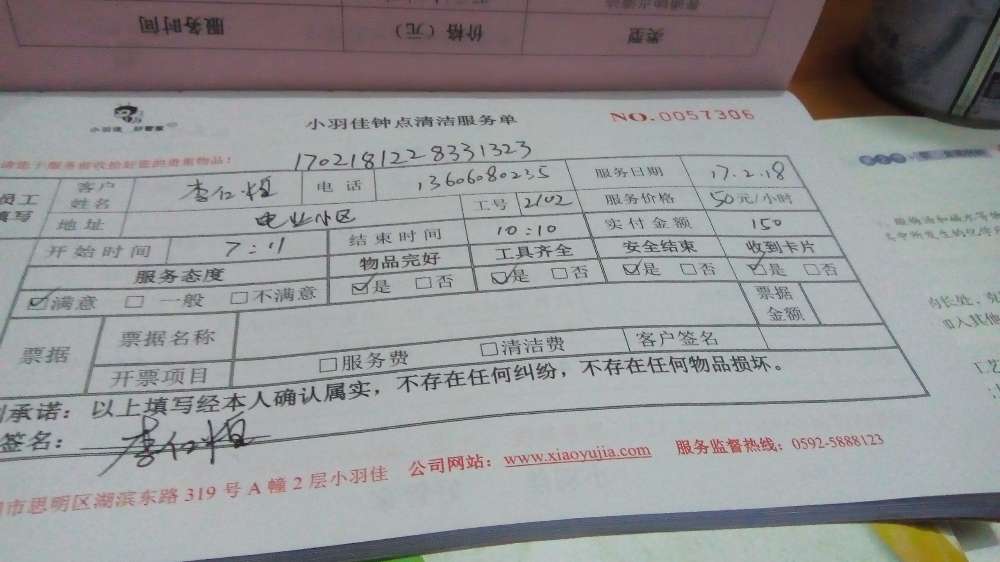 服务时间 价格（元） 类型
小羽佳 好管家
小羽佳钟点清洁服务单 NO.0057306
服务前收拾好您的贵重物品！
1702181228331323
员工填写 客户姓名 李仁恒 电话 13606080235 服务日期 17.2.18
地址 电业小区 工号 2102 服务价格 50元/小时
开始时间 7:11 结束时间 10:10 实付金额 150
服务态度 物品完好 工具齐全 安全结束 收到卡片
☑满意 □一般 □不满意 ☑是 □否 ☑是 □否 ☑是 □否 ☑是 □否
票据 票据名称 票据金额
开票项目 □服务费 □清洁费 客户签名
承诺：以上填写经本人确认属实，不存在任何纠纷，不存在任何物品损坏。
签名：李仁恒
市思明区湖滨东路319号A幢2层小羽佳 公司网站：www.xiaoyujia.com 服务监督热线：0592-5888123